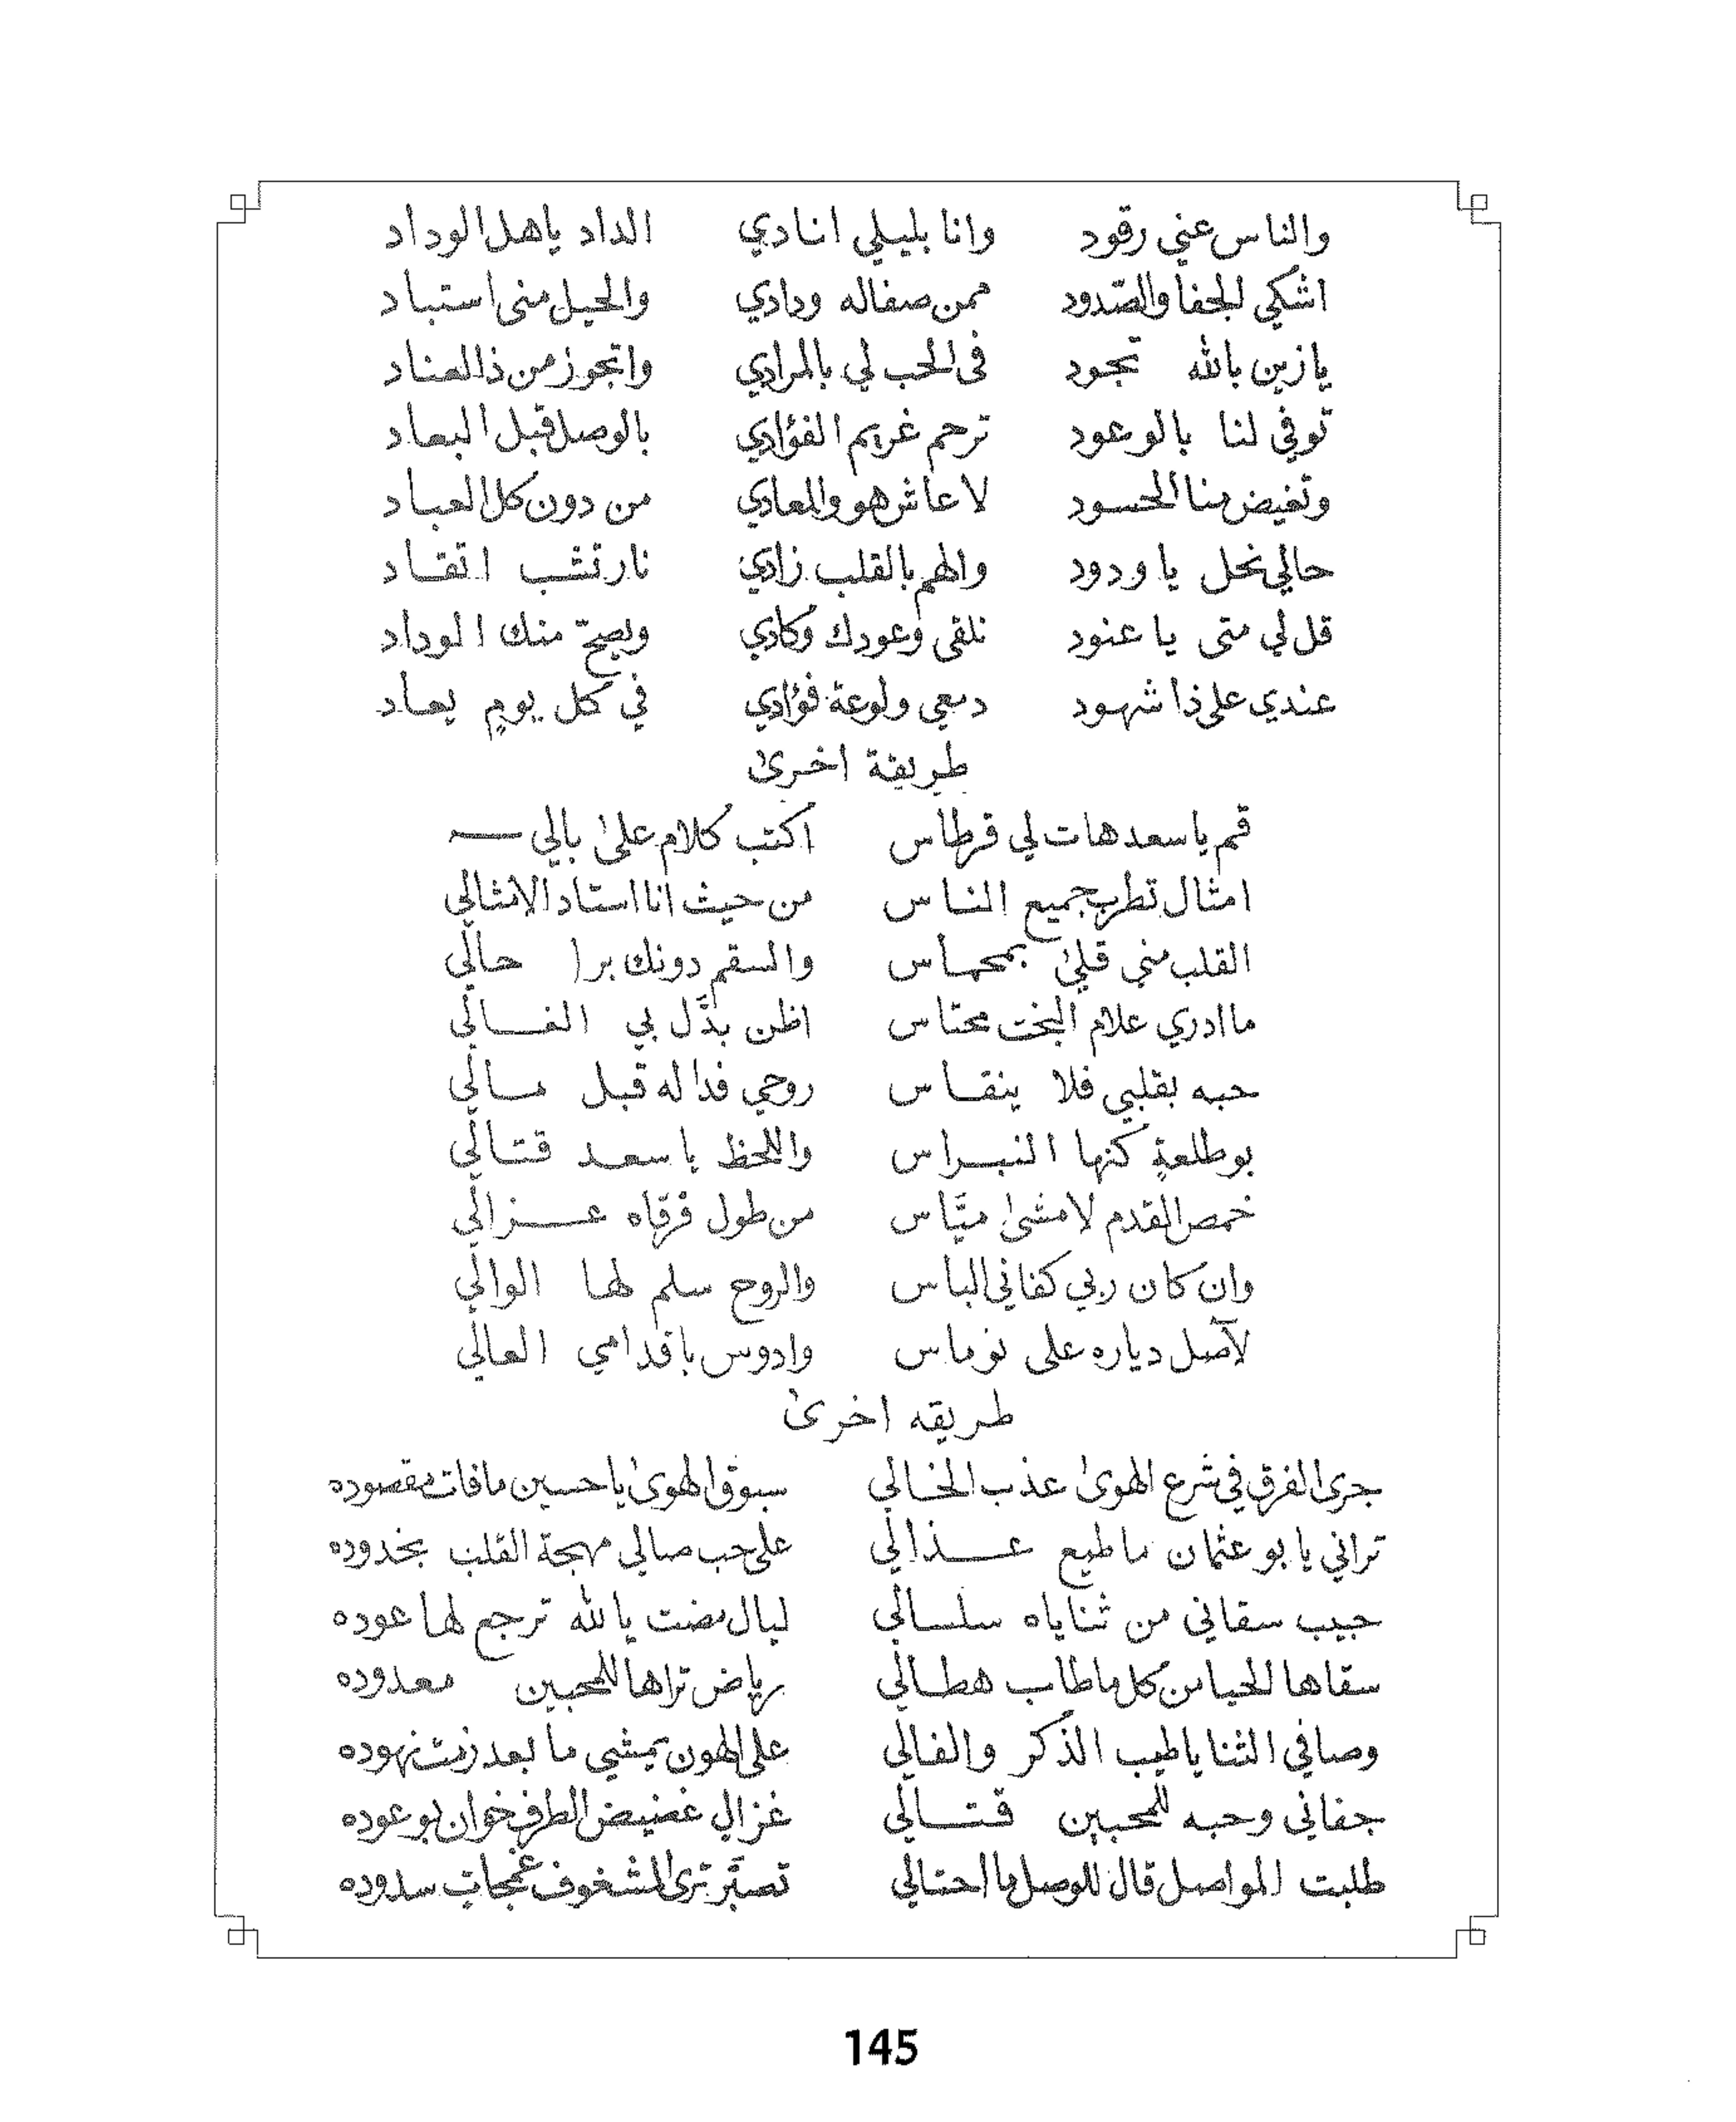 والناس عني رقود وانا بليلي انادي الداد ياهل الوداد
اشكي الجفا والصّدود ممن صفاله ودادي والحيل منى استباد
يازين بالله تجود فى الحب لي بالمرادي واتجوز من ذا العناد
توفي لنا بالوعود ترحم غريم الفؤادي بالوصل قبل البعاد
وتغيض منا الحسود لا عاش هو والمعادي من دون كل العباد
حالي نحل يا ودود والهم بالقلب زادي نار تشب اتقاد
قل لي متى يا عنود نلقى وعودك وكادي ويصحّ منك الوداد
عندي على ذا شهود دمعي ولوعة فؤادي في كل يومٍ يعاد
طريقة اخرىٰ
قم يا سعد هات لي قرطاس اكتب كلام علىٰ بالي
امثال تطرب جميع الناس من حيث انا استاد الامثالي
القلب مني قلىٰ بمحماس والسقم دونك برا حالي
ما ادري علام البخت محتاس اظن بدَّل بي الغالي
حبه بقلبي فلا ينقاس روحي فدا له قبل مالي
بو طلعةٍ كنها النبراس واللحظ يا سعد قتالي
خمص القدم لا مشىٰ ميَّاس من طول فرقاه عزالي
وان كان ربي كفاني الباس والروح سلم لها الوالي
لآصل دياره على نوماس وادوس باقدامي العالي
طريقه اخرىٰ
جرى الفرق في شرع الهوىٰ عذب الخالي سبوق الهوىٰ يا حسين ما فات مقصوده
تراني يا بو عثمان ما طيع عذالي على حب صالي مهجة القلب بخدوده
حبيب سقاني من ثناياه سلسالي ليال مضت يالله ترجع لها عوده
سقاها الحيا من كل ما طاب هطالي رياض تراها للمحبين معدوده
وصافي الثنا يا طيب الذكر والفالي على الهون يمشي ما بعد زمت نهوده
جفاني وحبه للمحبين قتالي غزالٍ غضيض الطرف خوان بوعوده
طلبت المواصل قال للوصل ما احتالي تصبّر ترى المشغوف عجات سدوده
145